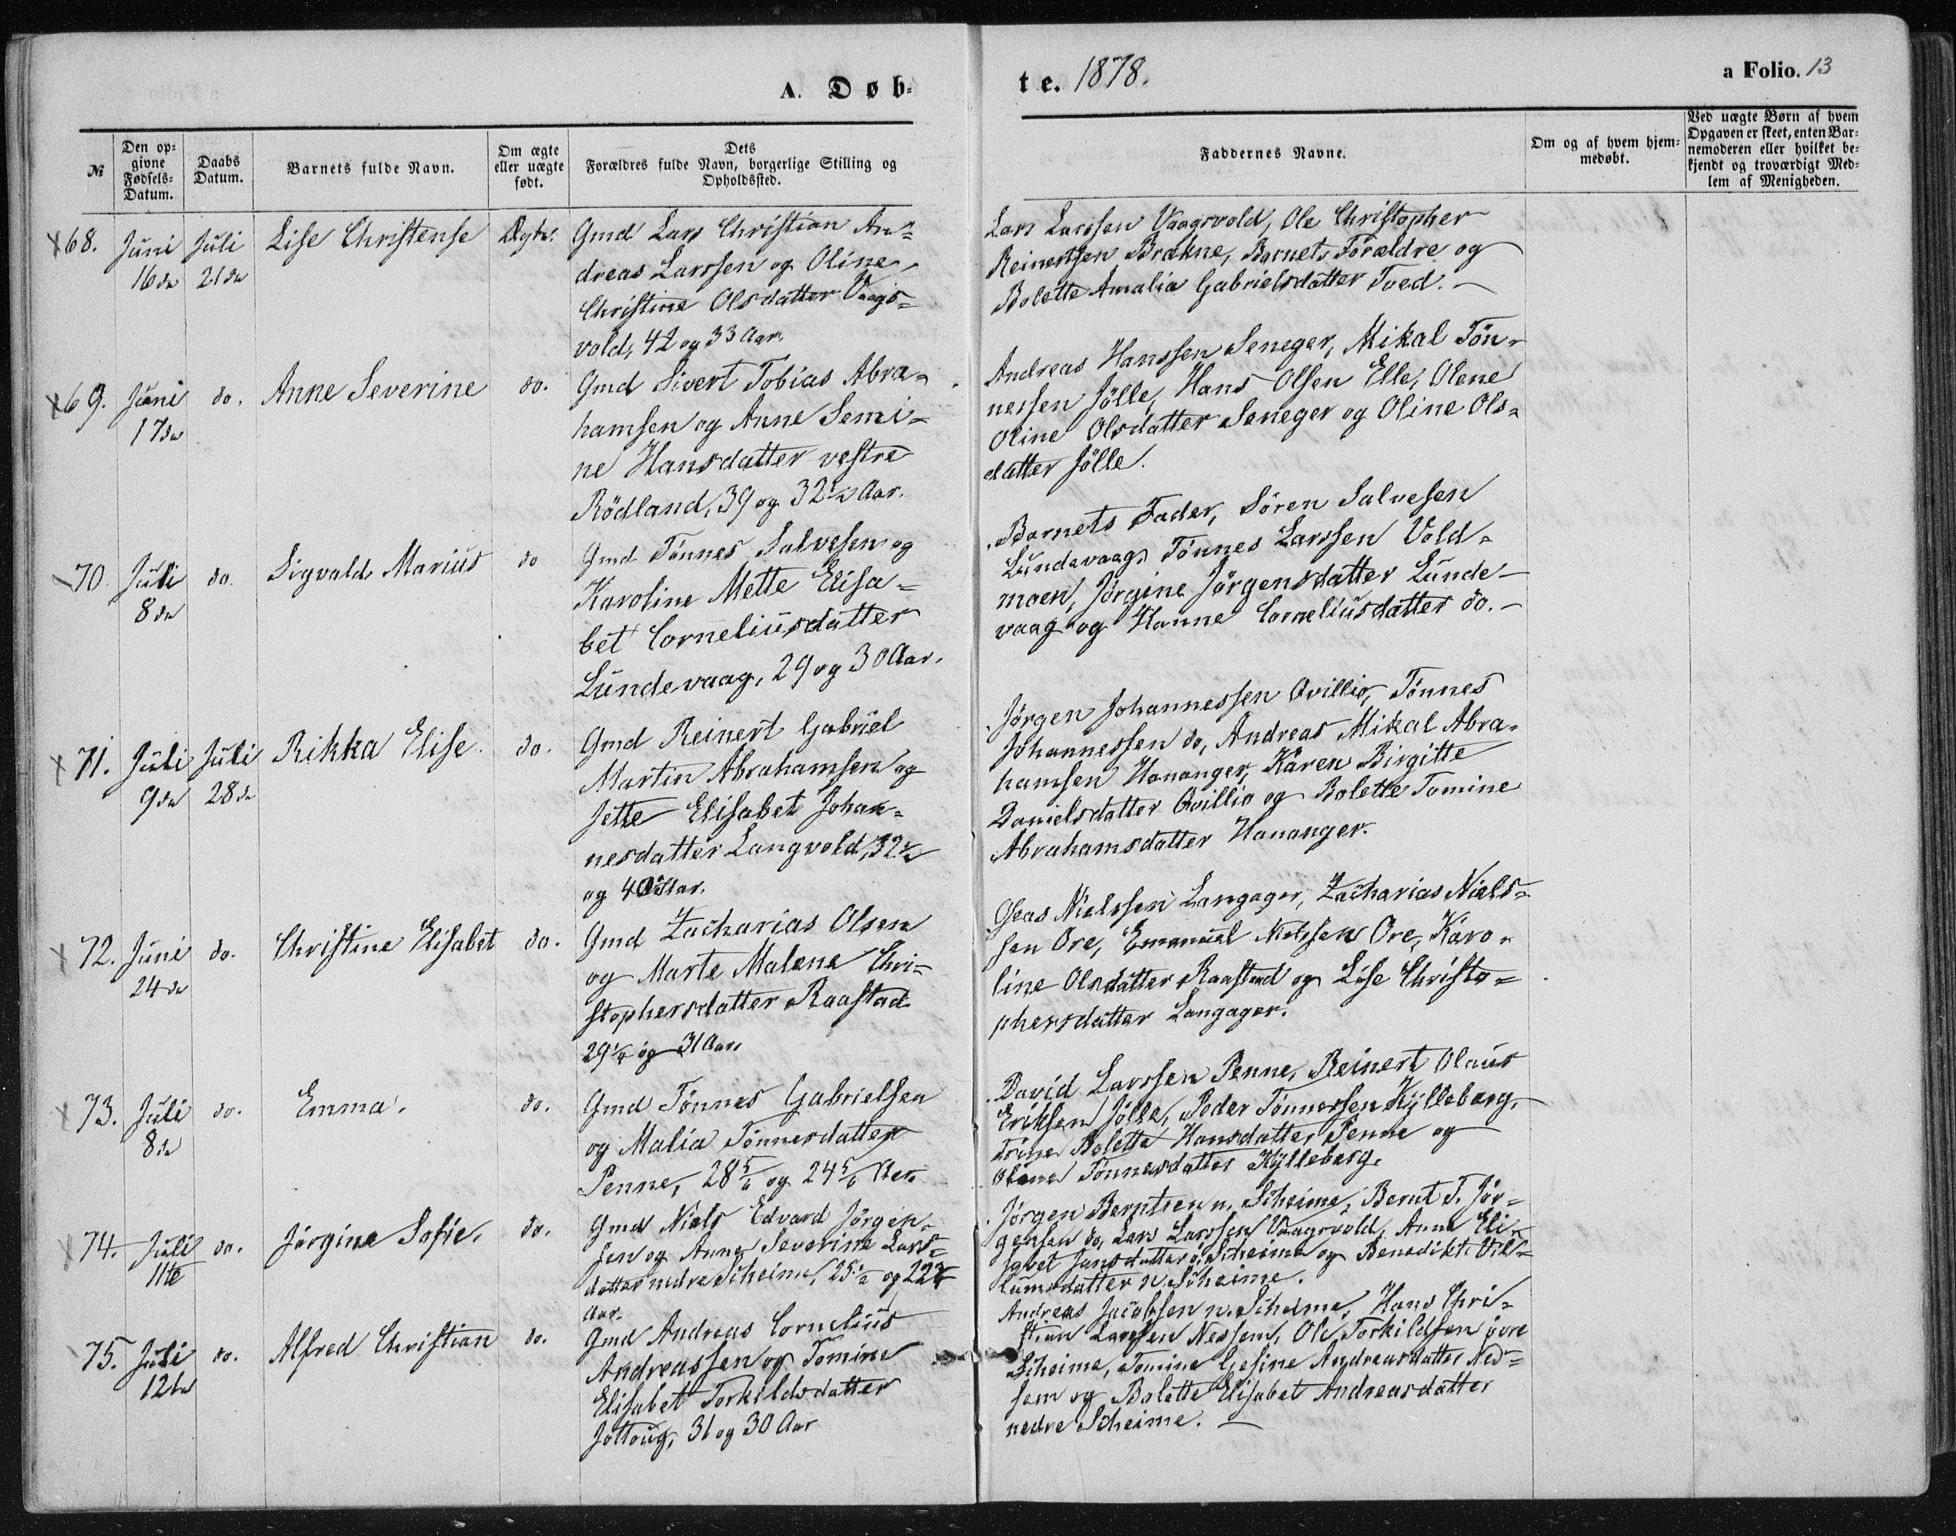 A. Døb-
te. 1878.
a Folio. 13
№
Den op-
givne
Fødsels-
Datum.
Daabs
Datum.
Barnets fulde Navn.
Om ægte
eller uægte
født.
Dets
Forældres fulde Navn, borgerlige Stilling og
Opholdssted.
Faddernes Navne.
Om og af hvem hjem-
medøbt.
Ved uægte Børn af hvem
Opgaven er skeet, enten Bar-
nemoderen eller hvilket be-
kjendt og troværdigt Med-
lem af Menigheden.
68. Juni 16de Juli 21de Lise Christense Ægte.
Gmd Lars Christian An-
dreas Larssen og Oline
Christine Olsdatter Vaags-
vold, 42 og 33 Aar.
Lars Larssen Vaagsvold, Ole Christopher
Reinertsen Brækne, Barnets Forældre og
Bolette Amalia Gabrielsdatter Tved. —
69. Juni 17de do. Anne Severine do.
Gmd Sivert Tobias Abra-
hamsen og Anne Semi-
ne Hansdatter vestre
Rödland, 39 og 32½ Aar.
Andreas Hanssen Seneger, Mikal Tön-
nessen Jölle, Hans Olsen Elle, Olene
Oline Olsdatter Seneger og Oline Ols-
datter Jölle.
70. Juli 8de do. Sigvald Marius do
Gmd Tönnes Salvesen og
Karoline Mette Elisa-
bet Corneliusdatter
Lundevaag, 29 og 30 Aar.
Barnets Fader, Sören Salvesen
Lundevaag, Tönnes Larssen Vold-
moen, Jörgine Jörgensdatter Lunde-
vaag og Hanne Corneliusdatter do. —
71. Juli 9de Juli 28de Rikka Elise. do.
Gmd Reinert Gabriel
Martin Abrahamsen og
Jette Elisabet Johan-
nesdatter Langvold, 32½
og 40 Aar.
Jörgen Johannessen Qvillio, Tönnes
Johannessen do, Andreas Mikal Abra-
hamsen Hananger, Karen Birgitte
Danielsdatter Qvillio og Bolette Tomine
Abrahamsdatter Hananger.
72. Juni 24de do. Christine Elisabet do.
Gmd Zacharias Olsen
og Marte Malene Chri-
stophersdatter Raastad
29¼ og 31 Aar.
Oseas Nielssen Langager, Zacharias Niels-
sen Ore, Emanuel Nielssen Ore, Karo-
line Olsdatter Raastad og Lise Christo-
phersdatter Langager.
73. Juli 8de do. Emma. do.
Gmd Tönnes Gabrielsen
og Malia Tönnesdatter
Penne, 28 5/6 og 24 5/6 Aar.
David Larssen Penne, Reinert Olaus
Eriksen Jölle, Peder Tönnessen Kylleberg,
Trine Bolette Hansdatter Penne og
Olene Tönnesdatter Kylleberg.
74. Juli 11te do. Jörgine Sofie. do.
Gmd Niels Edvard Jörgen-
sen og Anne Severine Lars-
datter nedre Skeime, 25½ og 22¾
Aar.
Jörgen Berntsen n. Skeime, Bernt T. Jör-
gensen do, Lars Larssen Vaagsvold, Anne Eli-
sabet Jansdatter ö. Skeime og Benedikte Vil-
lumsdatter n. Skeime.
75. Juli 12te do. Alfred Christian do.
Gmd Andreas Cornelius
Andreassen og Tomine
Elisabet Torkildsdatter
Jölloug, 31 og 30 Aar
Andreas Jacobsen n. Skeime, Hans Chri-
stian Larssen Nessem, Ole Torkildsen övre
Skeime, Tomine Gesine Andreasdatter Nes-
sem og Bolette Elisabet Andreasdatter
nedre Skeime. —